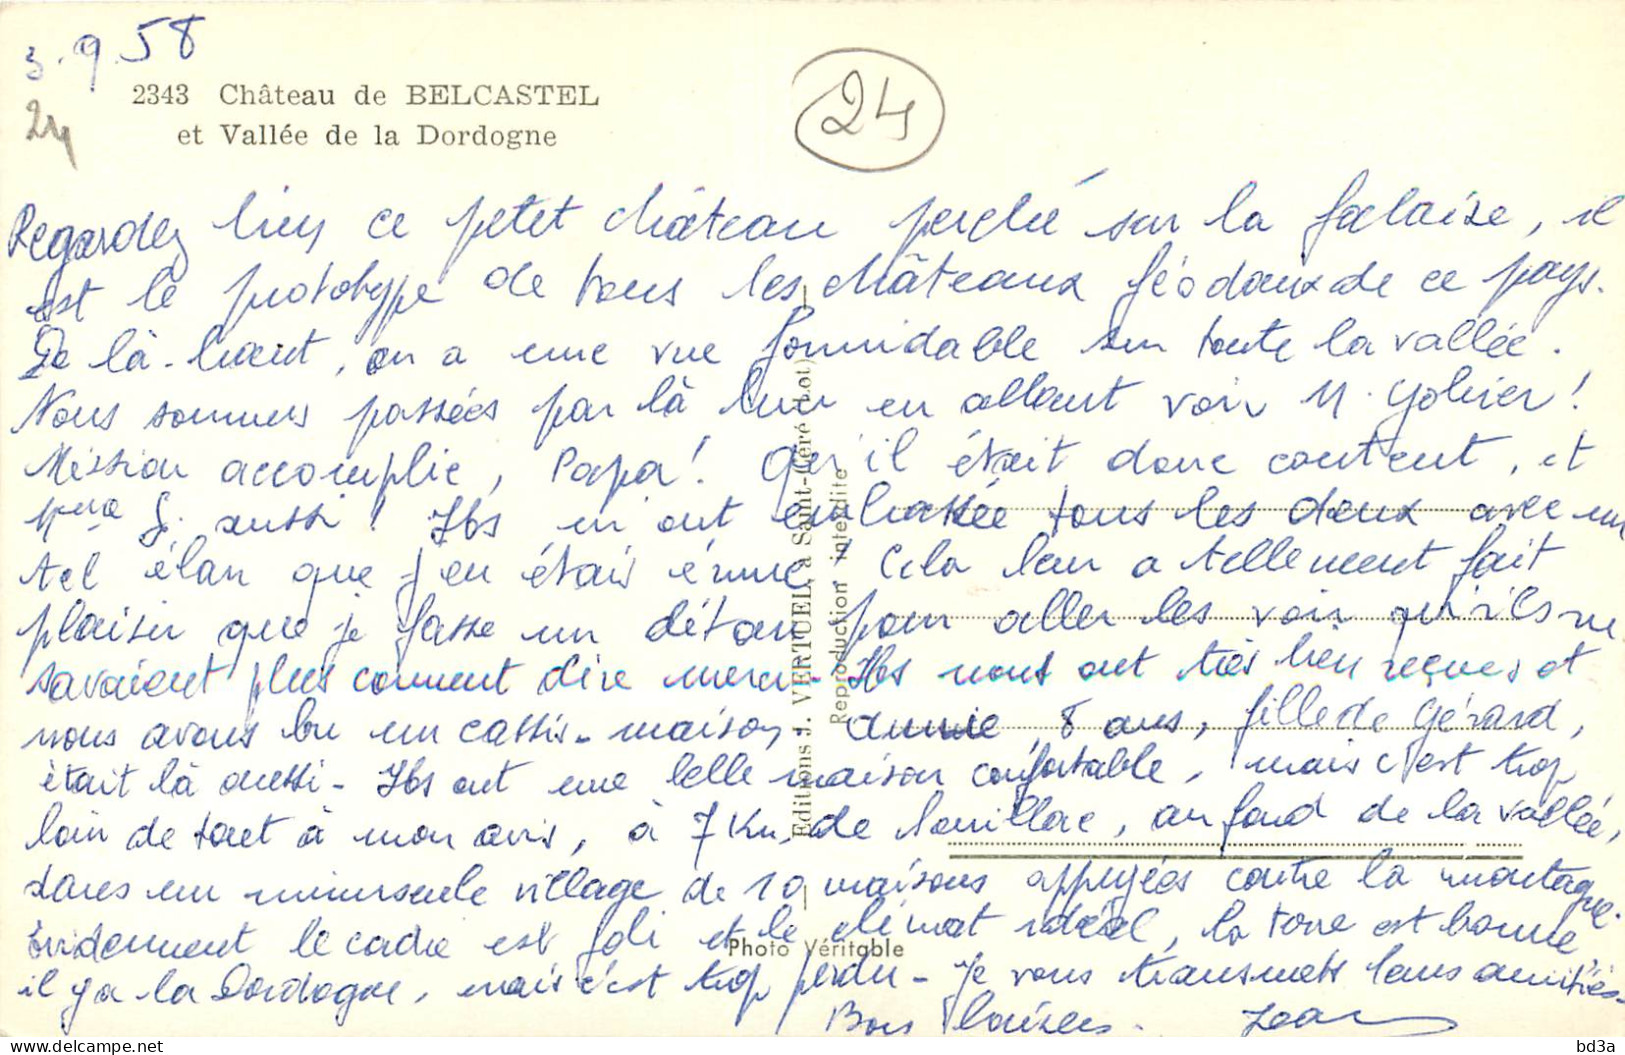 3.9.58
24
2343 Château de BELCASTEL
et Vallée de la Dordogne
24
Regardez bien ce petit château perché sur la falaise, il
est le prototype de tous les châteaux féodaux de ce pays.
De là-haut, on a une vue formidable sur toute la vallée.
Nous sommes passées par là hier en allant voir M.
Mission accomplie, Papa! Qu'il était donc content, et
Mme G. aussi! Ils m'ont embrassée tous les deux avec un
tel élan que j'en étais émue. Cela leur a tellement fait
plaisir que je fasse un détour pour aller les voir qu'ils ne
savaient plus comment dire merci - Ils nous ont très bien reçues et
nous avons bu un cassis-maison, Annie, 8 ans, fille de Gérard,
était là aussi - Ils ont une belle maison confortable, mais c'est trop
loin de tout à mon avis, à 7 Km de Souillac, au fond de la vallée,
dans un minuscule village de 10 maisons appuyées contre la montagne.
Évidemment le cadre est joli et le climat idéal, la terre est bonne
il y a la Dordogne, mais c'est trop perdu - Je vous transmets leurs amitiés -
Bons baisers.
Editions J. VERTUEL, à Saint-Céré (Lot)
Reproduction interdite
Photo Véritable
bd3a